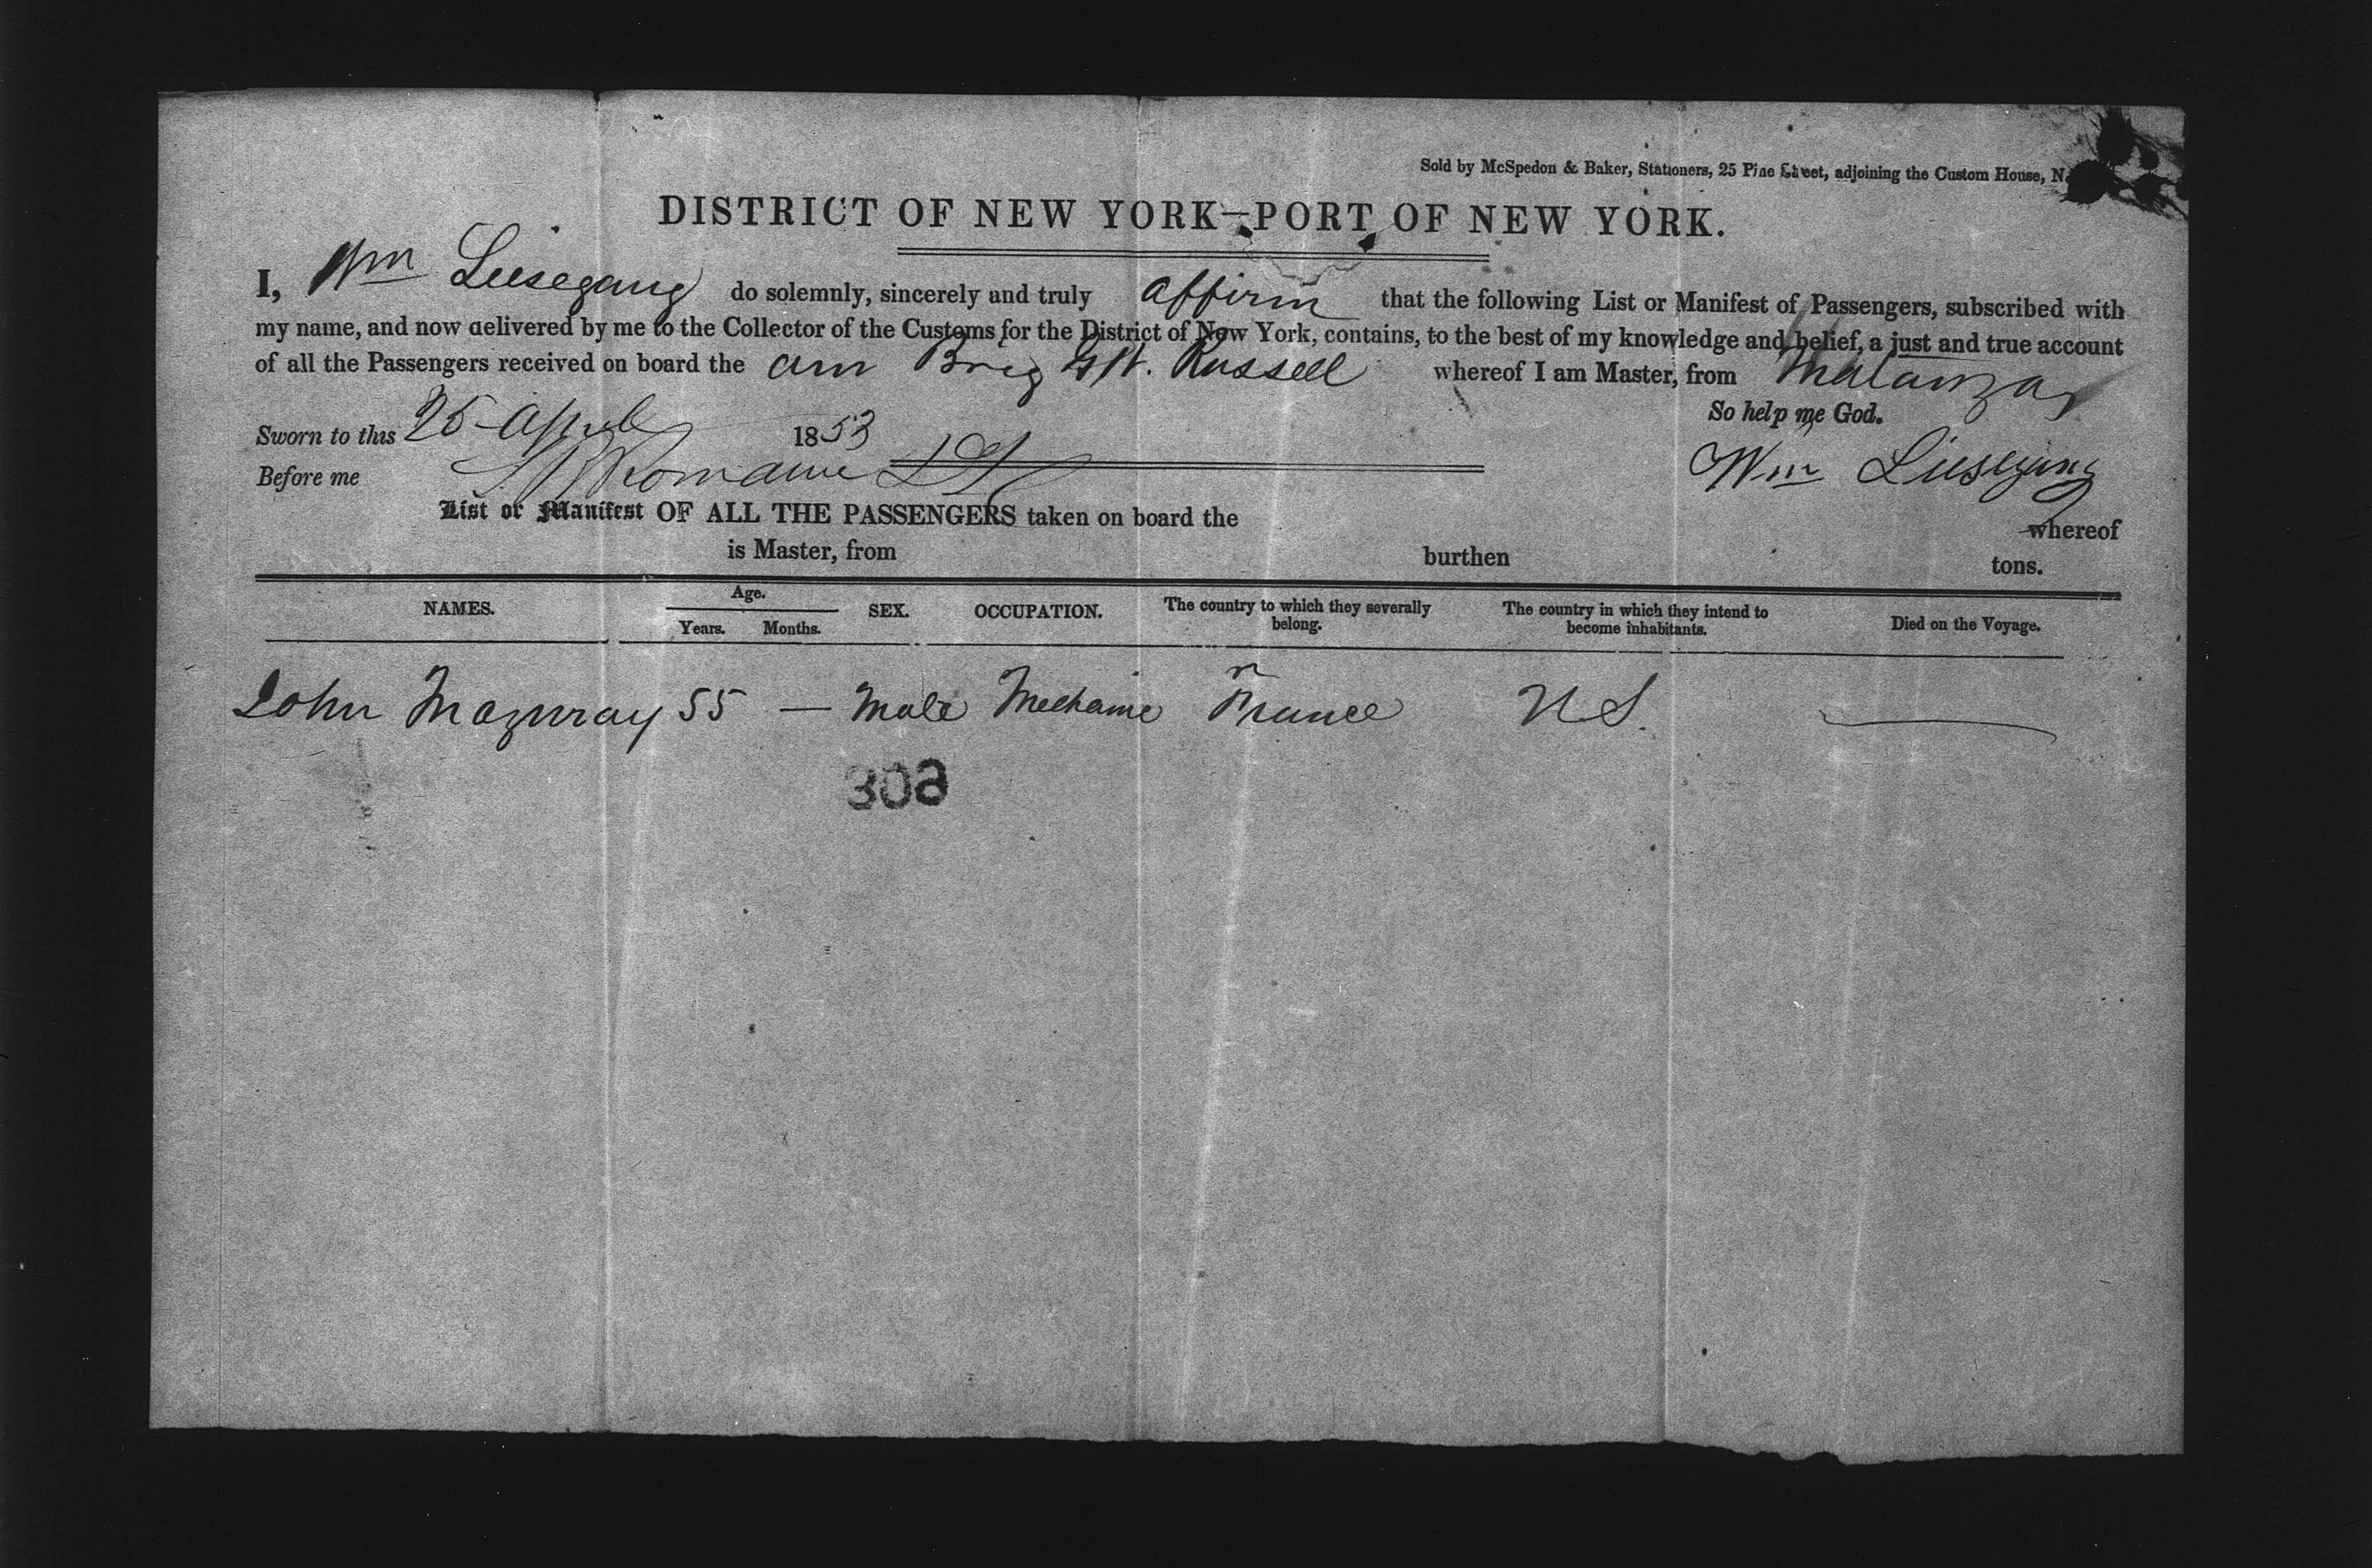 Sold by McSpedon & Baker, Stationers, 25 Pine Street, adjoining the Custom House, N.
DISTRICT OF NEW YORK—PORT OF NEW YORK.
I, Wm Liesegang do solemnly, sincerely and truly affirm that the following List or Manifest of Passengers, subscribed with
my name, and now delivered by me to the Collector of the Customs for the District of New York, contains, to the best of my knowledge and belief, a just and true account
of all the Passengers received on board the Am Brig G W. Russell whereof I am Master, from Matanzas
So help me God.
Sworn to this 25 April 1853
Before me Romaine Wm Liesegang
List or Manifest OF ALL THE PASSENGERS taken on board the whereof
is Master, from burthen tons.
NAMES. Age. Years. Months. SEX. OCCUPATION. The country to which they severally belong. The country in which they intend to become inhabitants. Died on the Voyage.
John Mazuray 55 — Male Mechanic France U S.
308